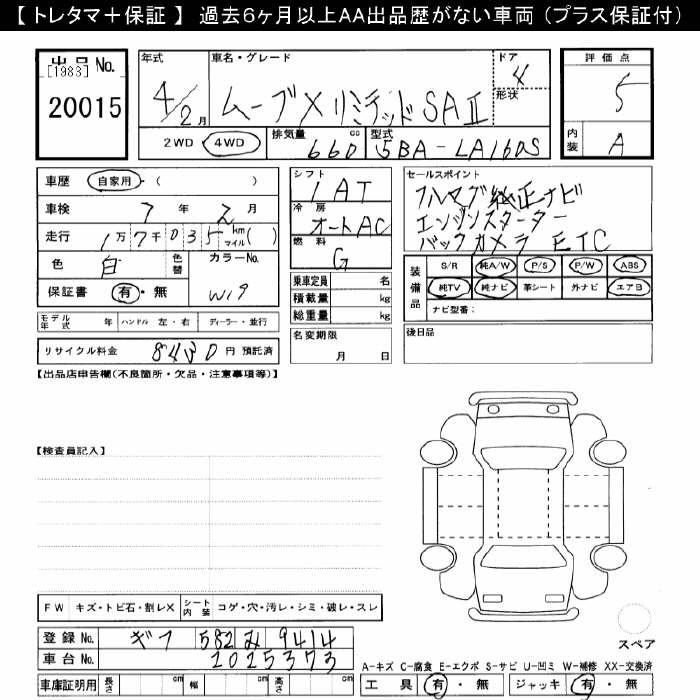 【 トレタマ＋保証 】 過去6ヶ月以上AA出品歴がない車両（プラス保証付）
出品 No.
[1983]
20015
年式
4/2月
車名・グレード
ムーブX リミテッド SAⅡ
ドア
4
形状
評価点
5
内装
A
2WD 4WD
排気量
660 cc
型式
5BA-LA160S
車歴 自家用・( )
車検 7年 2月
走行 1万7千035 km マイル( )
色 白
色替
カラーNo.
W19
保証書 有・無
モデル年式 年 ハンドル 左・右 ディーラー・並行
リサイクル料金 8430 円 預託済
シフト
IAT
冷房
オートAC
燃料
G
乗車定員 名
積載量 kg
総重量 kg
名変期限
月 日
セールスポイント
フルセグ純正ナビ
エンジンスターター
バックカメラ ETC
装備品
S/R 純A/W P/S P/W ABS
純TV 純ナビ 革シート 外ナビ エアB
ナビ型番：
後日品
【出品店申告欄(不良箇所・欠品・注意事項等)】
【検査員記入】
FW キズ・トビ石・割レX シート内装 コゲ・穴・汚レ・シミ・破レ・スレ
登録 No. ギフ 582 み 9414
車台 No. 2025373
車庫証明用 長さ cm 幅 cm 高さ cm
スペア
A-キズ C-腐食 E-エクボ S-サビ U-凹ミ W-補修 XX-交換済
工具 有・無 ジャッキ 有・無